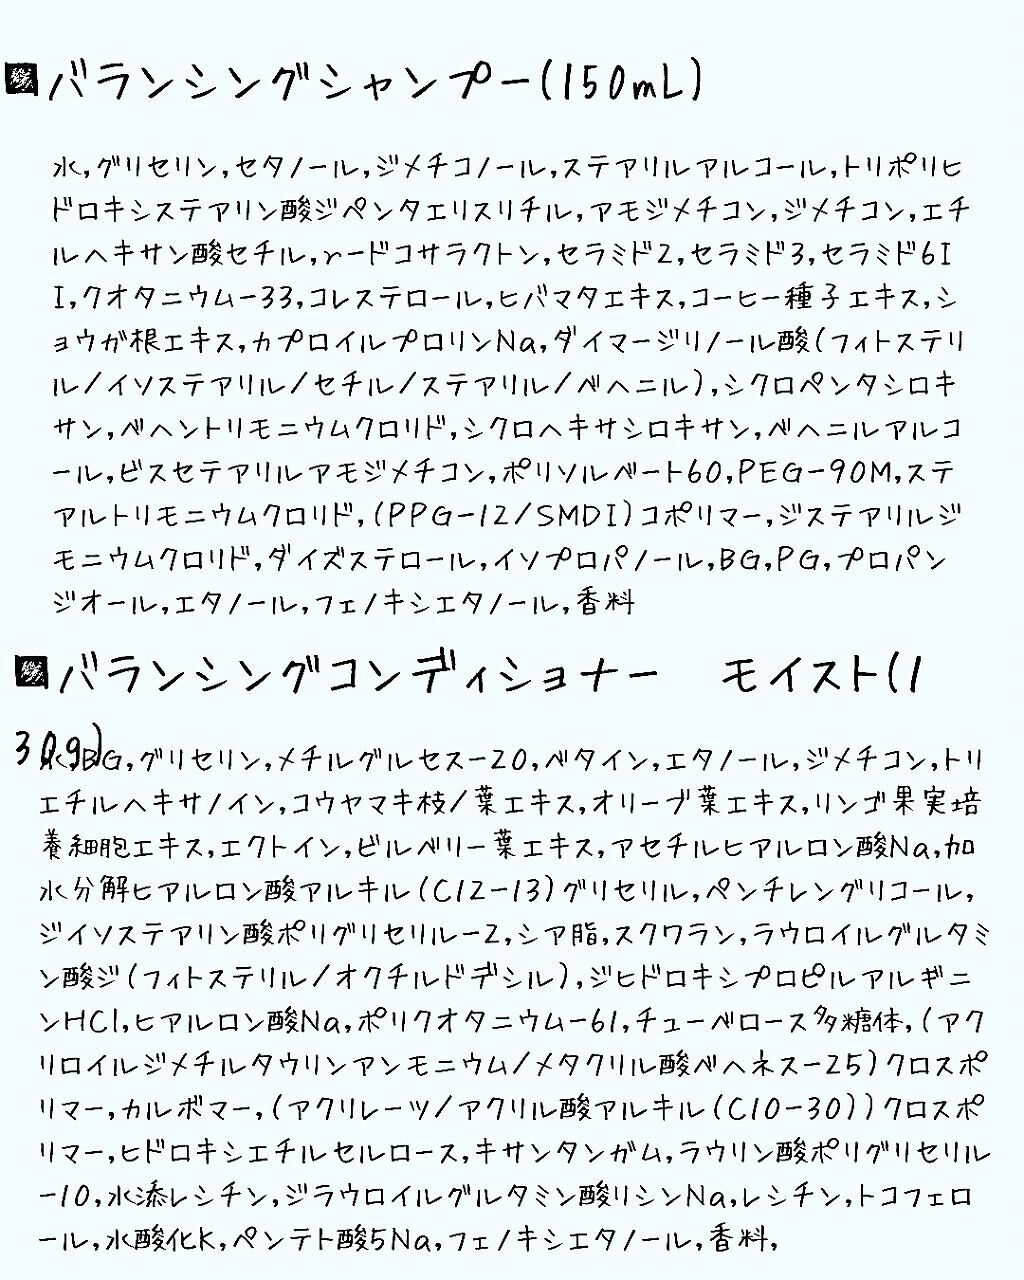 ■バランシングシャンプー(150mL)
水,グリセリン,セタノール,ジメチコノール,ステアリルアルコール,トリポリヒ
ドロキシステアリン酸ジペンタエリスリチル,アモジメチコン,ジメチコン,エチ
ルヘキサン酸セチル,γードコサラクトン,セラミド2,セラミド3,セラミド6I
I,クオタニウムー33,コレステロール,ヒバマタエキス,コーヒー種子エキス,シ
ョウガ根エキス,カプロイルプロリンNa,ダイマージリノール酸(フィトステリ
ル/イソステアリル/セチル/ステアリル/ベヘニル),シクロペンタシロキ
サン,ベヘントリモニウムクロリド,シクロヘキサシロキサン,ベヘニルアルコ
ール,ビスセテアリルアモジメチコン,ポリソルベート60,PEG-90M,ステ
アルトリモニウムクロリド,(PPG-12/SMDI)コポリマー,ジステアリルジ
モニウムクロリド,ダイズステロール,イソプロパノール,BG,PG,プロパン
ジオール,エタノール,フェノキシエタノール,香料
■バランシングコンディショナー　モイスト(1
30g)
水,BG,グリセリン,メチルグルセスー20,ベタイン,エタノール,ジメチコン,トリ
エチルヘキサノイン,コウヤマキ枝/葉エキス,オリーブ葉エキス,リンゴ果実培
養細胞エキス,エクトイン,ビルベリー葉エキス,アセチルヒアルロン酸Na,加
水分解ヒアルロン酸アルキル(C12-13)グリセリル,ペンチレングリコール,
ジイソステアリン酸ポリグリセリルー2,シア脂,スクワラン,ラウロイルグルタミ
ン酸ジ(フィトステリル/オクチルドデシル),ジヒドロキシプロピルアルギニ
ンHCl,ヒアルロン酸Na,ポリクオタニウムー61,チューベロース多糖体,(アク
リロイルジメチルタウリンアンモニウム/メタクリル酸ベヘネスー25)クロスポ
リマー,カルボマー,(アクリレーツ/アクリル酸アルキル(C10-30))クロスポ
リマー,ヒドロキシエチルセルロース,キサンタンガム,ラウリン酸ポリグリセリル
-10,水添レシチン,ジラウロイルグルタミン酸リシンNa,レシチン,トコフェロ
ール,水酸化K,ペンテト酸5Na,フェノキシエタノール,香料,